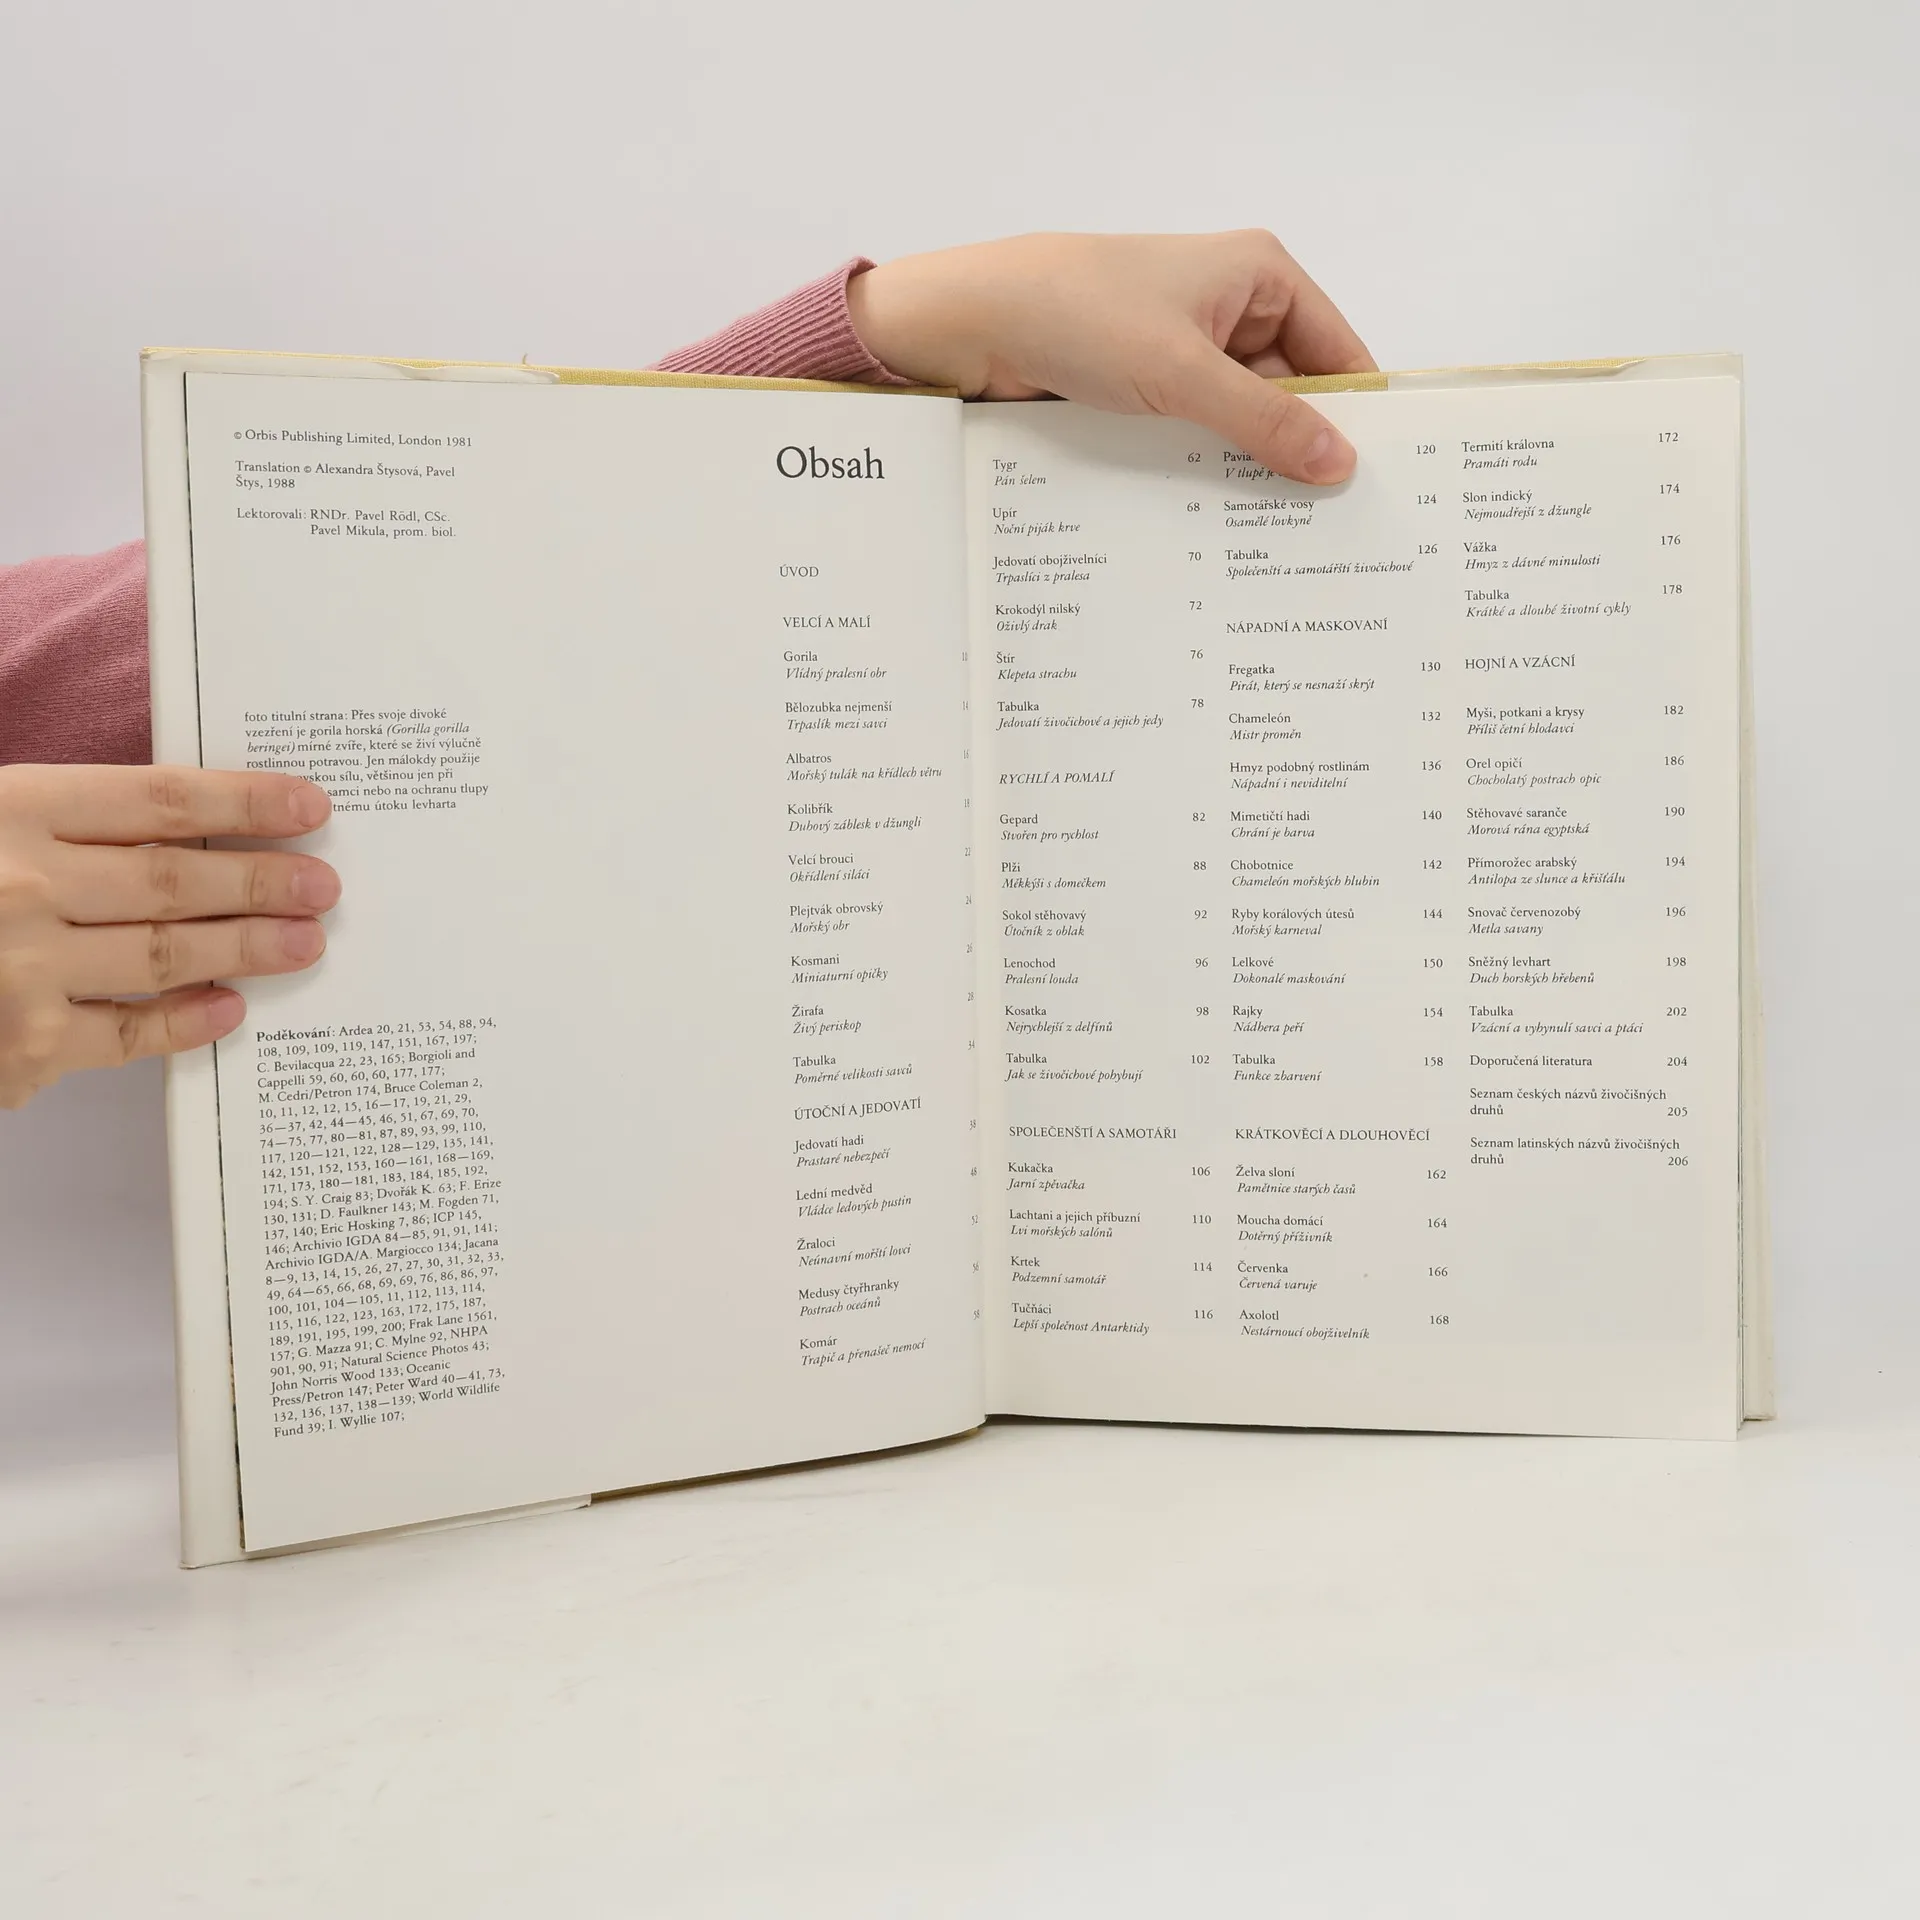 © Orbis Publishing Limited, London 1981
Translation © Alexandra Štysová, Pavel
Štys, 1988
Lektorovali: RNDr. Pavel Rödl, CSc.
Pavel Mikula, prom. biol.
foto titulní strana: Přes svoje divoké
vezření je gorila horská (Gorilla gorilla
beringei) mírné zvíře, které se živí výlučně
rostlinnou potravou. Jen málokdy použije
sílu, většinou jen při
samci nebo na ochranu tlupy
útoku levharta
Poděkování: Ardea 20, 21, 53, 54, 88, 94,
108, 109, 109, 119, 147, 151, 167, 197;
C. Bevilacqua 22, 23, 165; Borgioli and
Cappelli 59, 60, 60, 60, 177, 177;
M. Cedri/Petron 174, Bruce Coleman 2,
10, 11, 12, 12, 15, 16—17, 19, 21, 29,
36—37, 42, 44—45, 46, 51, 67, 69, 70,
74—75, 77, 80—81, 87, 89, 93, 99, 110,
117, 120—121, 122, 128—129, 135, 141,
142, 151, 152, 153, 160—161, 168—169,
171, 173, 180—181, 183, 184, 185, 192,
194; S. Y. Craig 83; Dvořák K. 63; F. Erize
130, 131; D. Faulkner 143; M. Fogden 71,
137, 140; Eric Hosking 7, 86; ICP 145,
146; Archivio IGDA 84—85, 91, 91, 141;
Archivio IGDA/A. Margiocco 134; Jacana
8—9, 13, 14, 15, 26, 27, 27, 30, 31, 32, 33,
49, 64—65, 66, 68, 69, 69, 76, 86, 86, 97,
100, 101, 104—105, 11, 112, 113, 114,
115, 116, 122, 123, 163, 172, 175, 187,
189, 191, 195, 199, 200; Frak Lane 1561,
157; G. Mazza 91; C. Mylne 92, NHPA
901, 90, 91; Natural Science Photos 43;
John Norris Wood 133; Oceanic
Press/Petron 147; Peter Ward 40—41, 73,
132, 136, 137, 138—139; World Wildlife
Fund 39; I. Wyllie 107;
Obsah
ÚVOD
VELCÍ A MALÍ
Gorila 10
Vlídný pralesní obr
Bělozubka nejmenší 14
Trpaslík mezi savci
Albatros 16
Mořský tulák na křídlech větru
Kolibřík 18
Duhový záblesk v džungli
Velcí brouci 22
Okřídlení siláci
Plejtvák obrovský 24
Mořský obr
Kosmani 26
Miniaturní opičky
Žirafa 28
Živý periskop
Tabulka 34
Poměrné velikosti savců
ÚTOČNÍ A JEDOVATÍ
Jedovatí hadi 38
Prastaré nebezpečí
Lední medvěd 48
Vládce ledových pustin
Žraloci 52
Neúnavní mořští lovci
Medusy čtyřhranky 56
Postrach oceánů
Komár 58
Trapič a přenašeč nemocí
Tygr 62
Pán šelem
Upír 68
Noční piják krve
Jedovatí obojživelníci 70
Trpaslíci z pralesa
Krokodýl nilský 72
Oživlý drak
Štír 76
Klepeta strachu
Tabulka 78
Jedovatí živočichové a jejich jedy
RYCHLÍ A POMALÍ
Gepard 82
Stvořen pro rychlost
Plži 88
Měkkýši s domečkem
Sokol stěhovavý 92
Útočník z oblak
Lenochod 96
Pralesní louda
Kosatka 98
Nejrychlejší z delfínů
Tabulka 102
Jak se živočichové pohybují
SPOLEČENŠTÍ A SAMOTÁŘI
Kukačka 106
Jarní zpěvačka
Lachtani a jejich příbuzní 110
Lvi mořských salónů
Krtek 114
Podzemní samotář
Tučňáci 116
Lepší společnost Antarktidy
120
V tlupě je
Samotářské vosy 124
Osamělé lovkyně
Tabulka 126
Společenští a samotářští živočichové
NÁPADNÍ A MASKOVANÍ
Fregatka 130
Pirát, který se nesnaží skrýt
Chameleón 132
Mistr proměn
Hmyz podobný rostlinám 136
Nápadní i neviditelní
Mimetičtí hadi 140
Chrání je barva
Chobotnice 142
Chameleón mořských hlubin
Ryby korálových útesů 144
Mořský karneval
Lelkové 150
Dokonalé maskování
Rajky 154
Nádhera peří
Tabulka 158
Funkce zbarvení
KRÁTKOVĚCÍ A DLOUHOVĚCÍ
Želva sloní 162
Pamětnice starých časů
Moucha domácí 164
Dotěrný příživník
Červenka 166
Červená varuje
Axolotl 168
Nestárnoucí obojživelník
Termití královna 172
Pramáti rodu
Slon indický 174
Nejmoudřejší z džungle
Vážka 176
Hmyz z dávné minulosti
Tabulka 178
Krátké a dlouhé životní cykly
HOJNÍ A VZÁCNÍ
Myši, potkani a krysy 182
Příliš četní hlodavci
Orel opičí 186
Chocholatý postrach opic
Stěhovavé saranče 190
Morová rána egyptská
Přímorožec arabský 194
Antilopa ze slunce a křišťálu
Snovač červenozobý 196
Metla savany
Sněžný levhart 198
Duch horských hřebenů
Tabulka 202
Vzácní a vyhynulí savci a ptáci
Doporučená literatura 204
Seznam českých názvů živočišných
druhů 205
Seznam latinských názvů živočišných
druhů 206